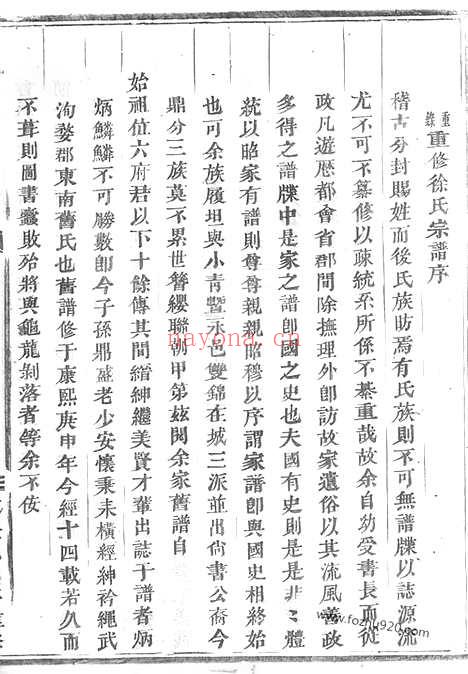 重錄重修徐氏宗譜序
稽古分封賜姓而後氏族昉焉有氏族則不可無譜牒以誌源流
尤不可不纂修以疎統系所係不綦重哉故余自幼受書長而從
政凡遊歷都會省郡間除撫理外卽訪故家遺俗以其流風善政
多得之譜牒中是家之譜卽國之史也夫國有史則是是非〻體
統以昭家有譜則尊尊親親昭穆以序謂家譜卽與國史相終始
也可余族履坦與小青暨永也雙錦在城三派並出尙書公裔今
鼎分三族莫不累世簪纓聯朝甲第茲閱余家舊譜自
始祖位六府君以下十餘傳其間縉紳繼美賢才輩出誌于譜者炳
炳鱗鱗不可勝數卽今子孫鼎盛老少安懷秉耒橫經紳衿繩武
洵婺郡東南舊氏也舊譜修于康熙庚申年今經十四載若久而
不葺則圖書蠧敗殆將與龜龍剝落者等余不佞
nayona.cn
www.fozhu920.com